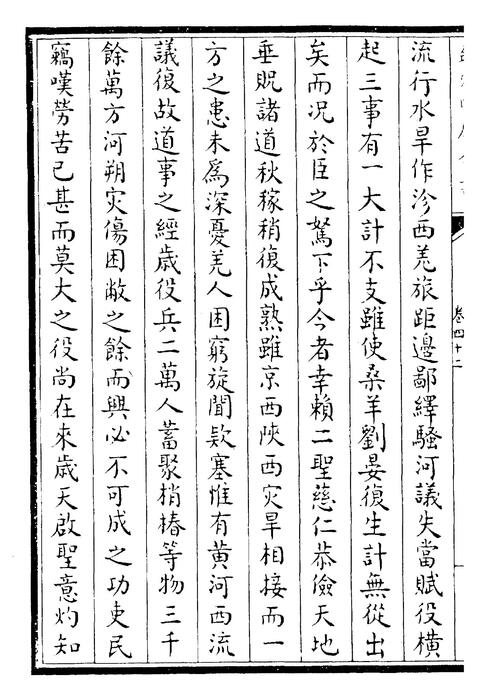 卷四十二
流行水旱作沴西羗旅距邊鄙繹騷河議失當賦役橫
起三事有一大計不支雖使桑羊劉晏復生計無從出
矣而况於臣之駑下乎今者幸賴二聖慈仁恭儉天地
垂貺諸道秋稼稍復成熟雖京西陜西灾旱相接而一
方之患未爲深憂羗人困窮旋聞欵塞惟有黄河西流
議復故道事之經歳役兵二萬人蓄聚梢樁等物三千
餘萬方河朔灾傷困敝之餘而興必不可成之功吏民
竊嘆勞苦已甚而莫大之役尚在來歳天啟聖意灼知